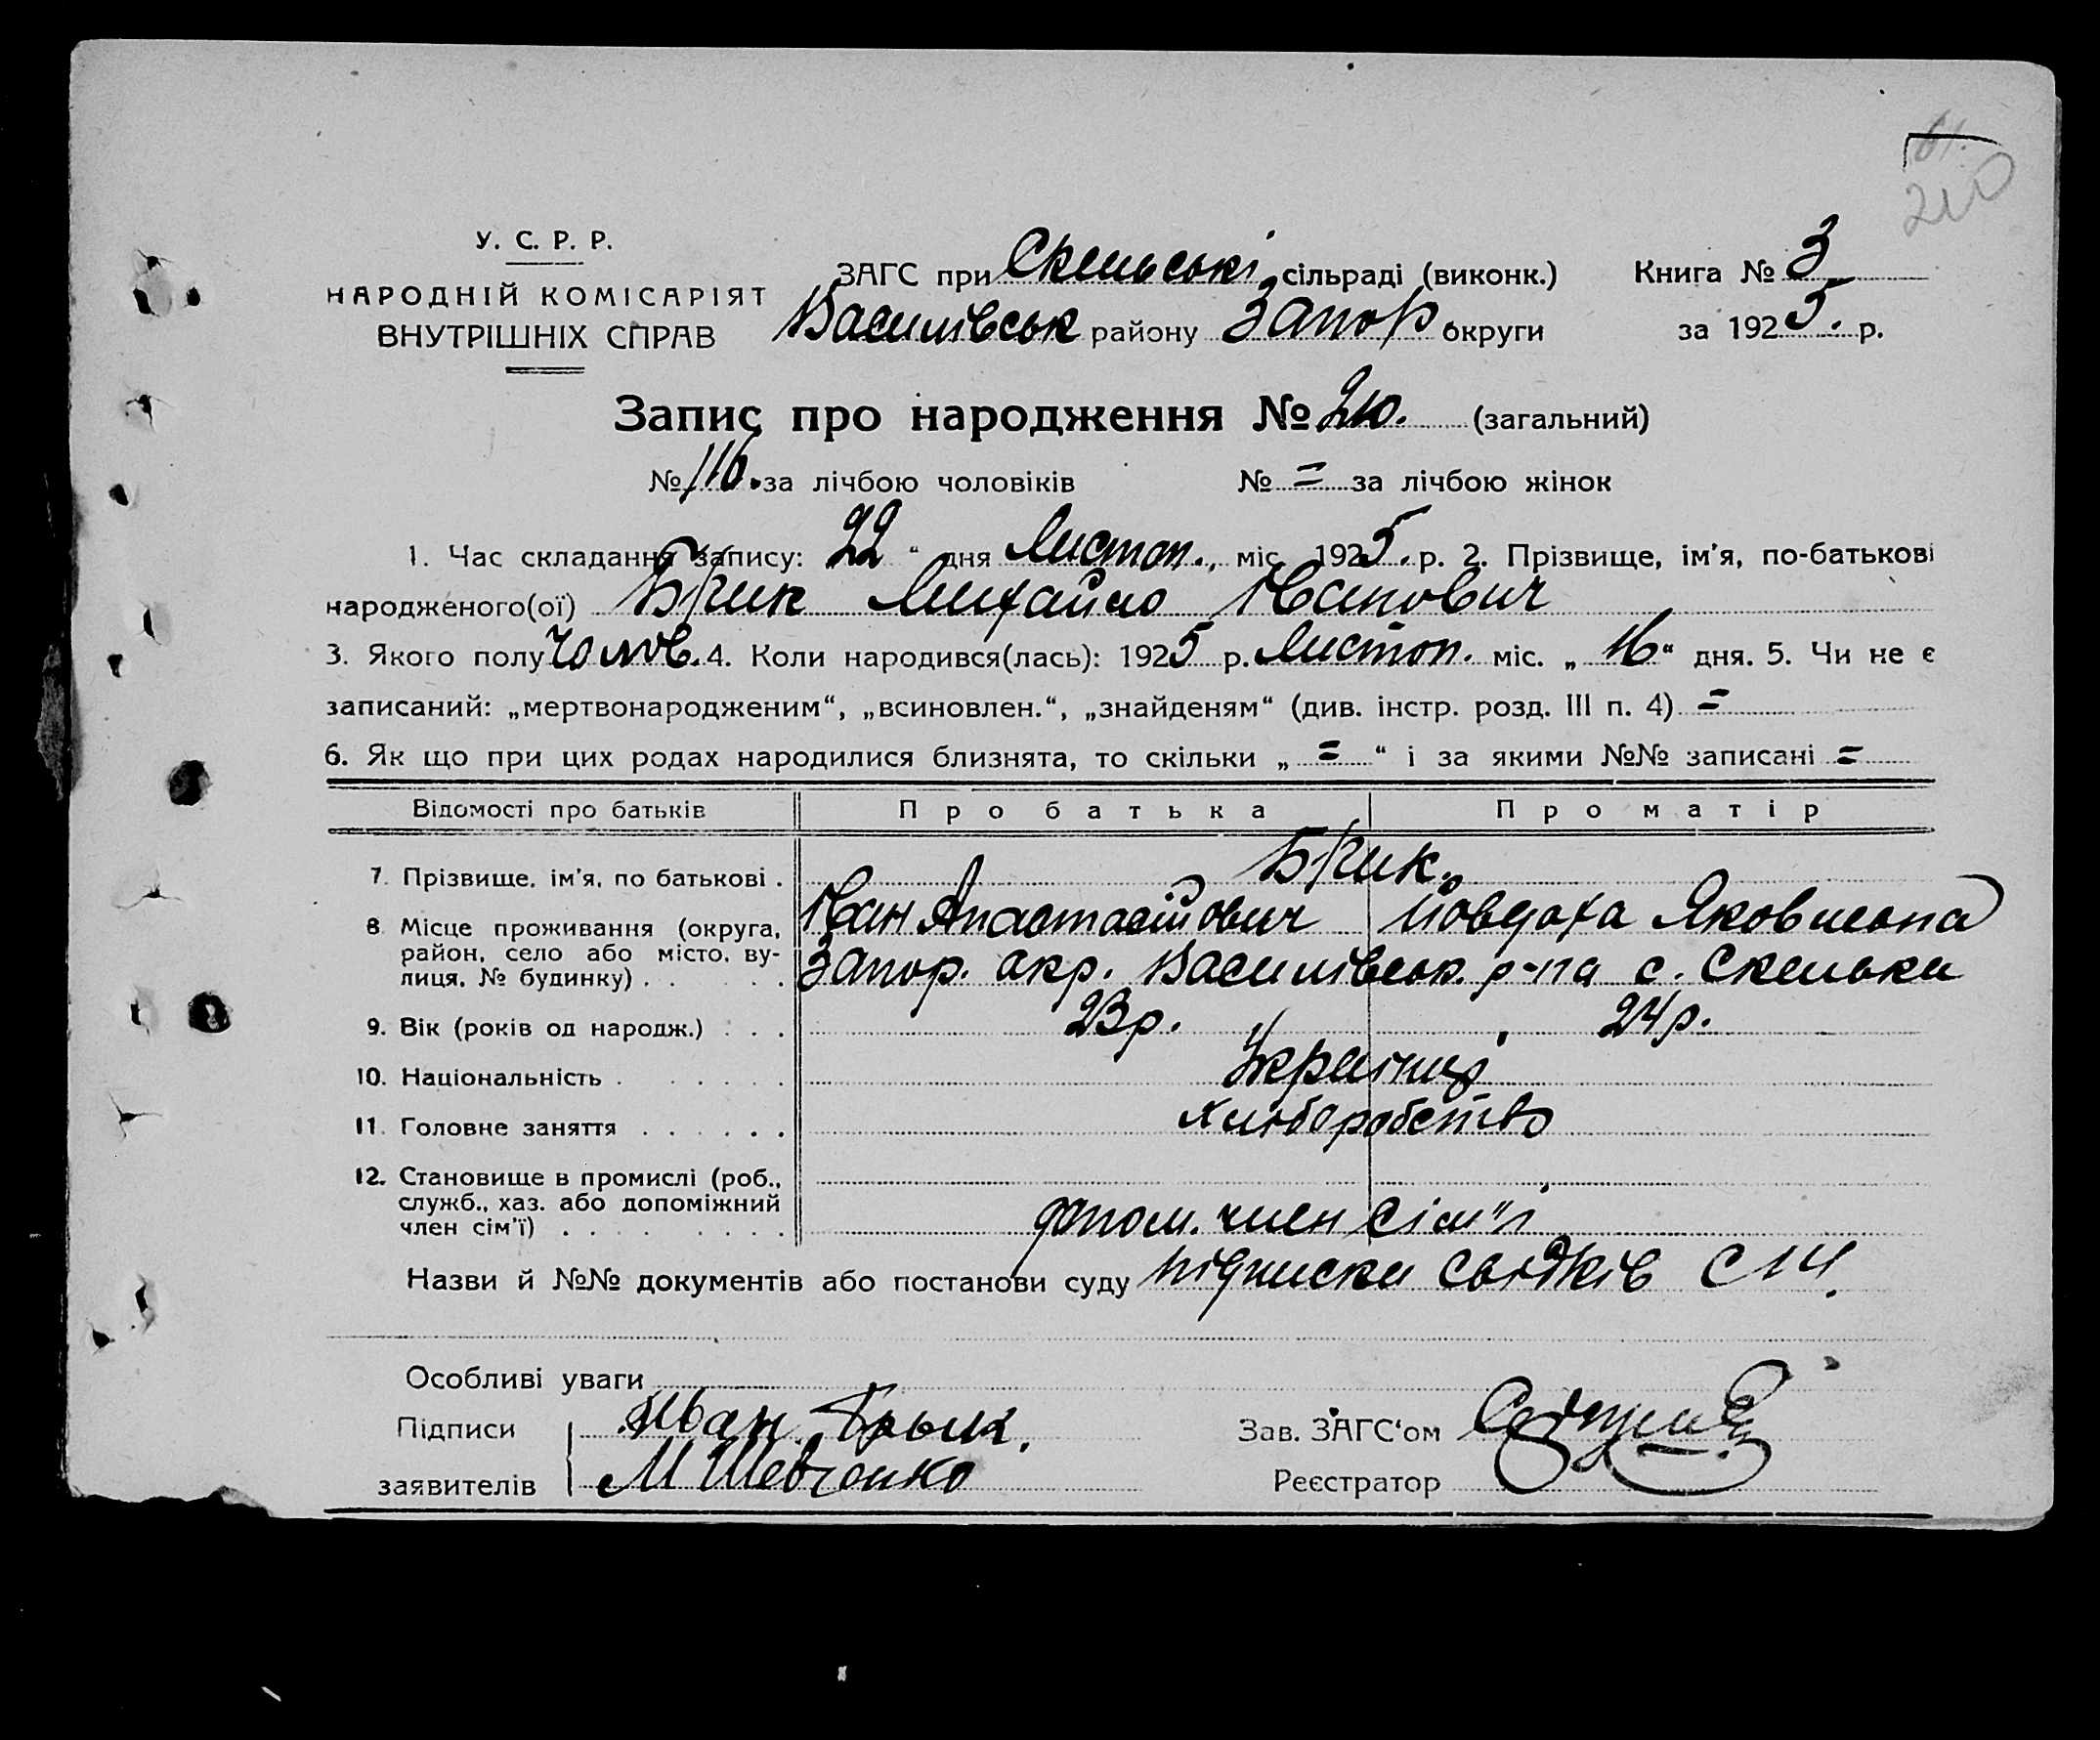 61.
210
У. С. Р. Р.
НАРОДНІЙ КОМІСАРІЯТ
ВНУТРІШНІХ СПРАВ
ЗАГС при Скельські сільраді (виконк.) Книга № 3
Василівськ району Запор округи за 1925. р.
Запис про народження № 210. (загальний)
№ 116. за лічбою чоловіків № = за лічбою жінок
1. Час складання запису: 22 " дня Листоп., міс. 1925. р. 2. Прізвище, ім'я, по-батькові
народженого(ої) Брик Михайло Іванович
3. Якого полу Чолов. 4. Коли народився(лась): 1925 р. Листоп. міс. „ 16 " дня. 5. Чи не є
записаний: „мертвонародженим“, „всиновлен.“, „знайденям“ (див. інстр. розд. III п. 4) =
6. Як що при цих родах народилися близнята, то скільки „ = “ і за якими №№ записані =
Відомості про батьків Про батька Про матір
7. Прізвище, ім'я, по батькові . Брик.
Іван Анастасійович Йовдоха Яковлевна
8. Місце проживання (округа,
район, село або місто, ву-
лиця, № будинку) . . . . . Запор. окр. Василівськ. р-на с. Скельки
9. Вік (років од народж.) . . . 23р. 24р.
10. Національність . . . . . . Українці
11. Головне заняття . . . . . . хліборобство
12. Становище в промислі (роб.,
служб., хаз. або допоміжний
член сім'ї) . . . . . . . . допом. член сім"ї
Назви й №№ документів або постанови суду підписки свідків
Особливі уваги
Підписи Иван Брык. Зав. ЗАГС'ом
заявителів М Шевченко Реєстратор